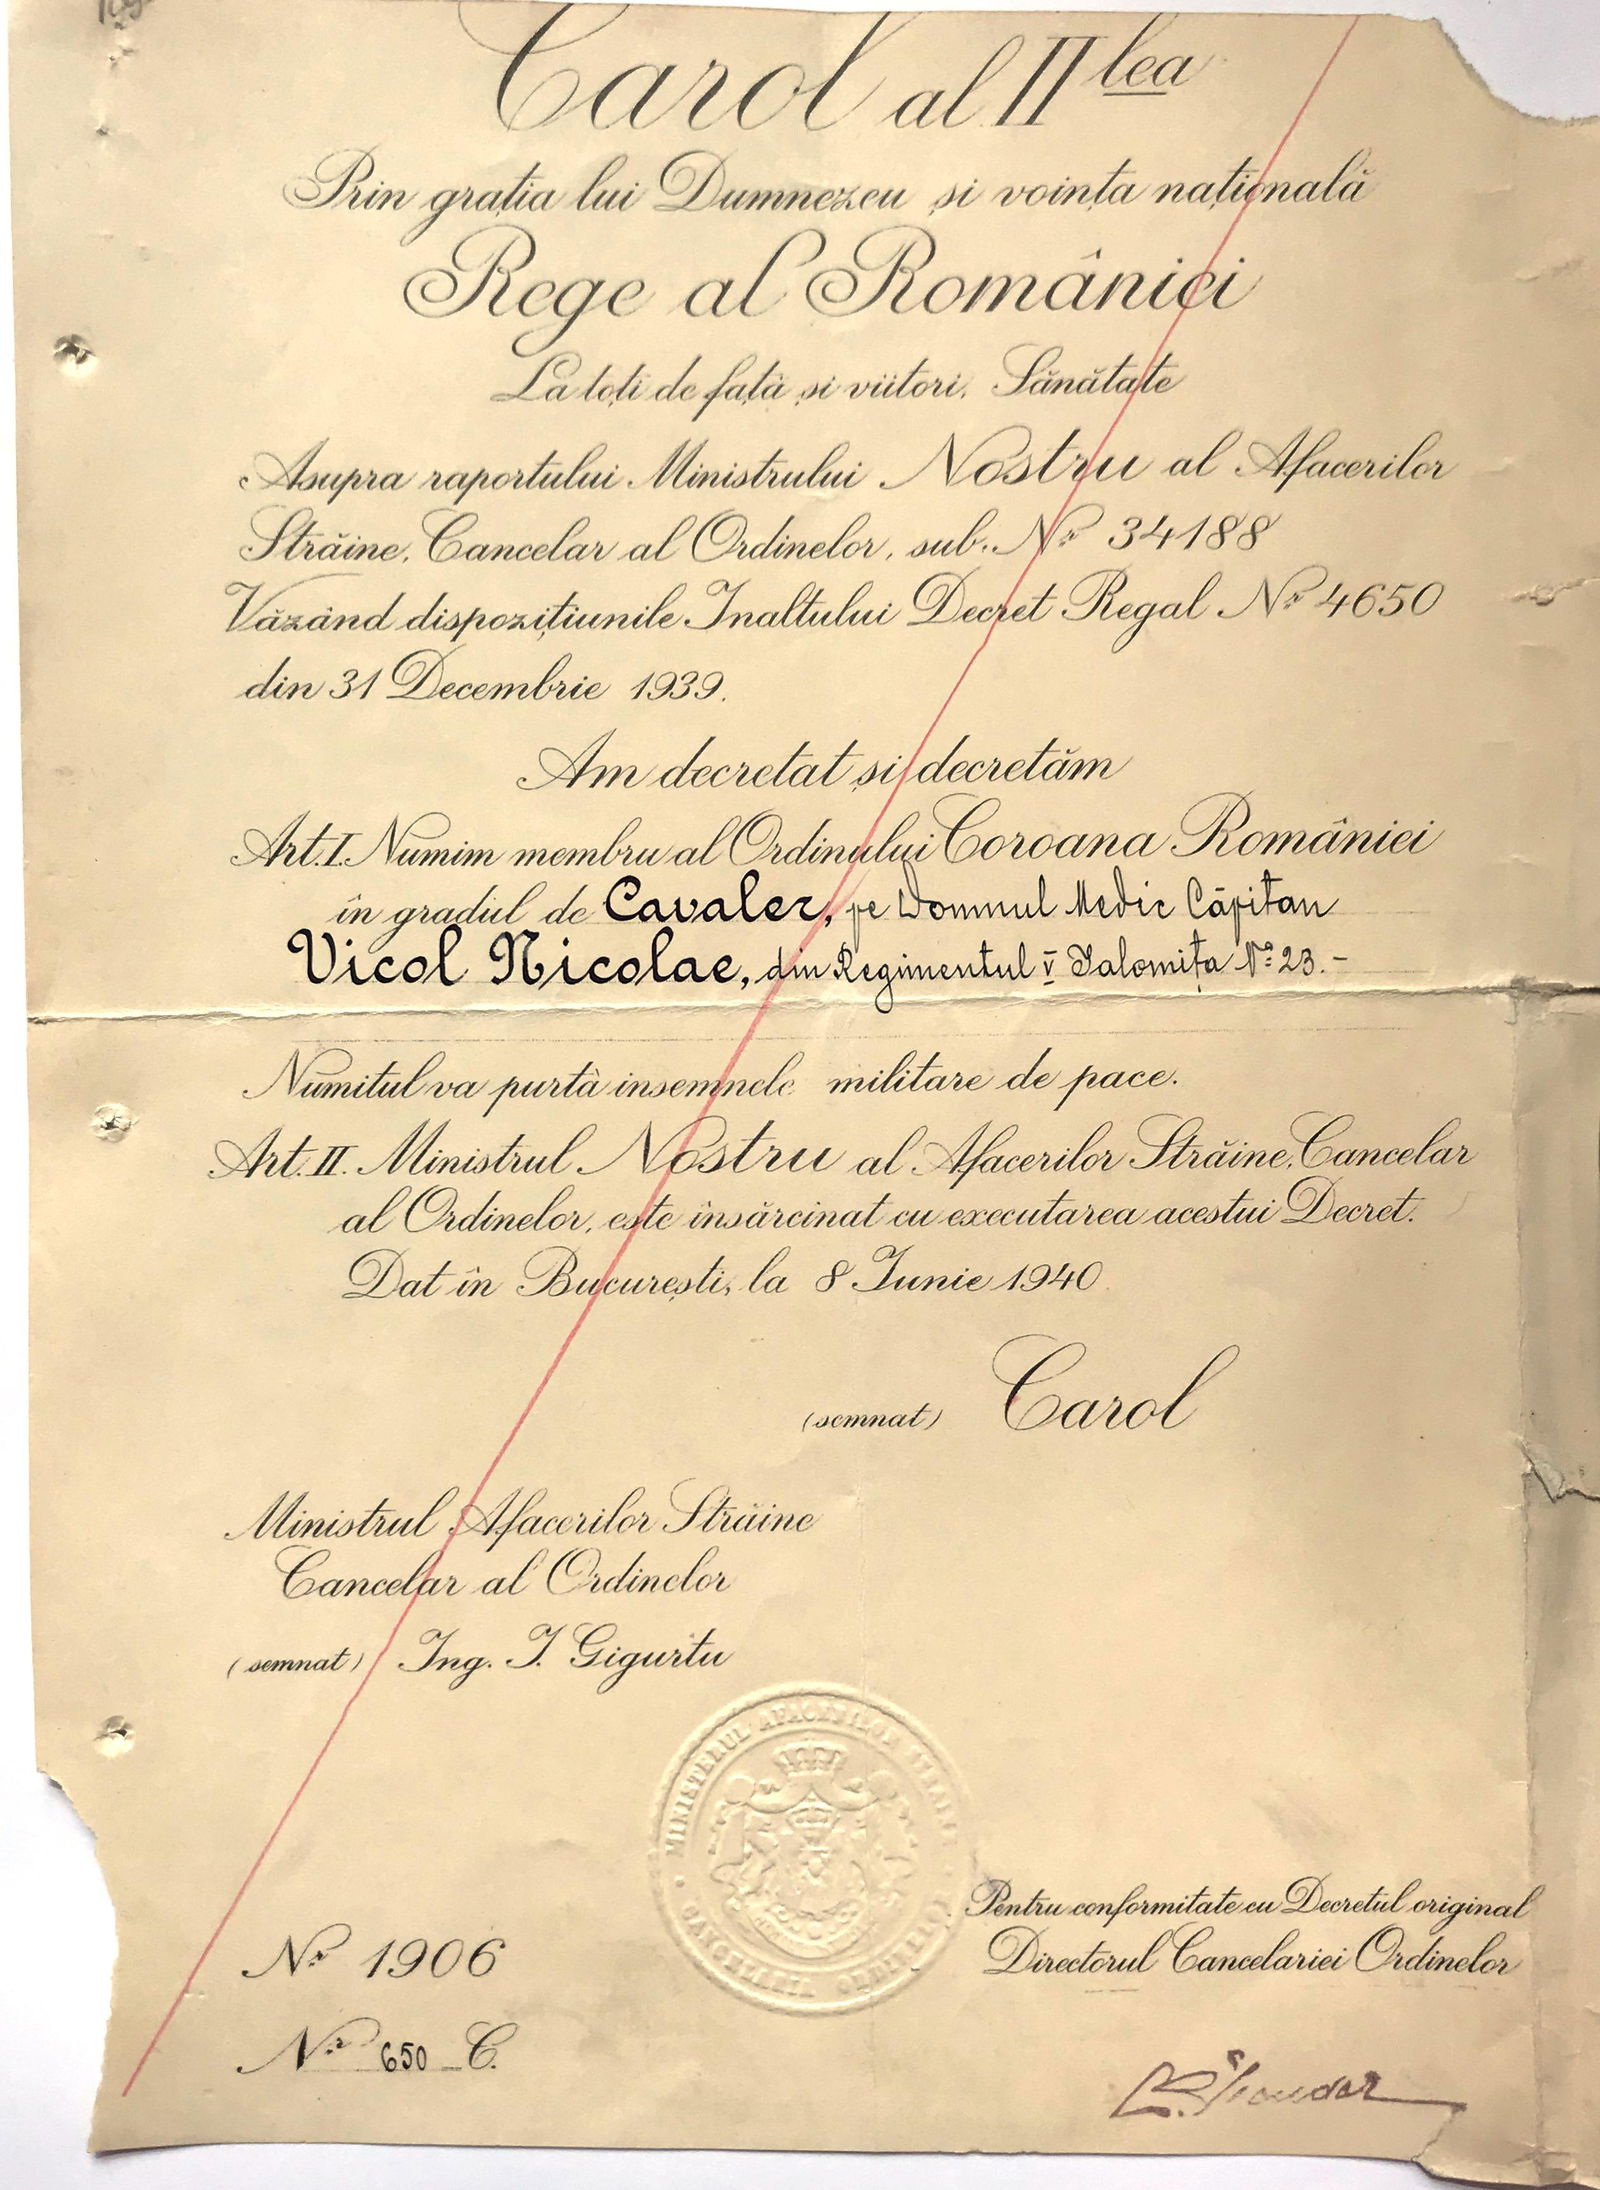 Carol al II lea
Prin grația lui Dumnezeu și voința națională
Rege al României
La toți de față și viitori, Sănătate
Asupra raportului Ministrului Nostru al Afacerilor
Străine, Cancelar al Ordinelor, sub. Nr 34188
Văzând dispozițiunile Inaltului Decret Regal Nr 4650
din 31 Decembrie 1939.
Am decretat și decretăm
Art. I. Numim membru al Ordinului Coroana României
în gradul de Cavaler, pe Domnul Medic Căpitan
Vicol Nicolae, din Regimentul V Ialomița No 23.-
Numitul va purtà insemnele militare de pace.
Art. II. Ministrul Nostru al Afacerilor Străine, Cancelar
al Ordinelor, este însărcinat cu executarea acestui Decret.
Dat în București, la 8 Iunie 1940.
(semnat) Carol
Ministrul Afacerilor Străine
Cancelar al Ordinelor
(semnat) Ing. I. Gigurtu
MINISTERUL AFACERILOR STRAINE
CANCELARIA ORDINELOR
Pentru conformitate cu Decretul original
Directorul Cancelariei Ordinelor
Nr 1906
Nr 650 C.